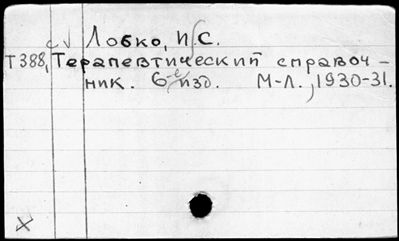 Лобко, П. С.
Т388, Терапевтический справоч-
ник. 6-е изд. М-Л., 1930-31.